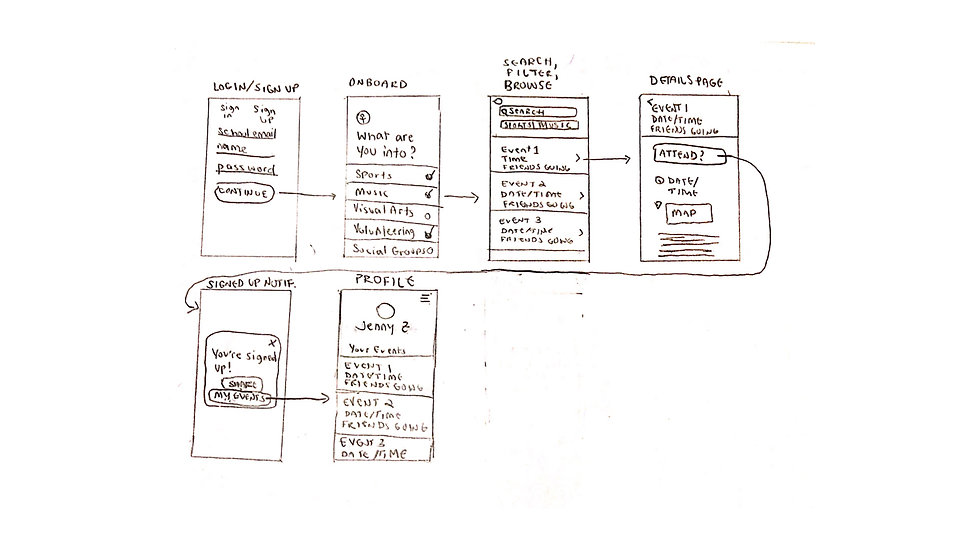 LOGIN/SIGN UP
Sign in
Sign UP
School email
name
password
CONTINUE
ONBOARD
What are
you into?
Sports
Music
Visual Arts
Volunteering
Social Groups
SEARCH,
FILTER,
BROWSE
SEARCH
SPORTS MUSIC
Event 1
TIME
FRIENDS GOING
EVENT 2
DATE/TIME
FRIENDS GOING
EVENT 3
DATE/TIME
FRIENDS GOING
DETAILS PAGE
EVENT 1
DATE/TIME
FRIENDS GOING
ATTEND?
DATE/
TIME
MAP
SIGNED UP NOTIF.
X
You're signed
up!
SHARE
MY EVENTS
PROFILE
Jenny Z
Your Events
EVENT 1
DATE/TIME
FRIENDS GOING
EVENT 2
DATE/TIME
FRIENDS GOING
EVENT 3
DATE/TIME